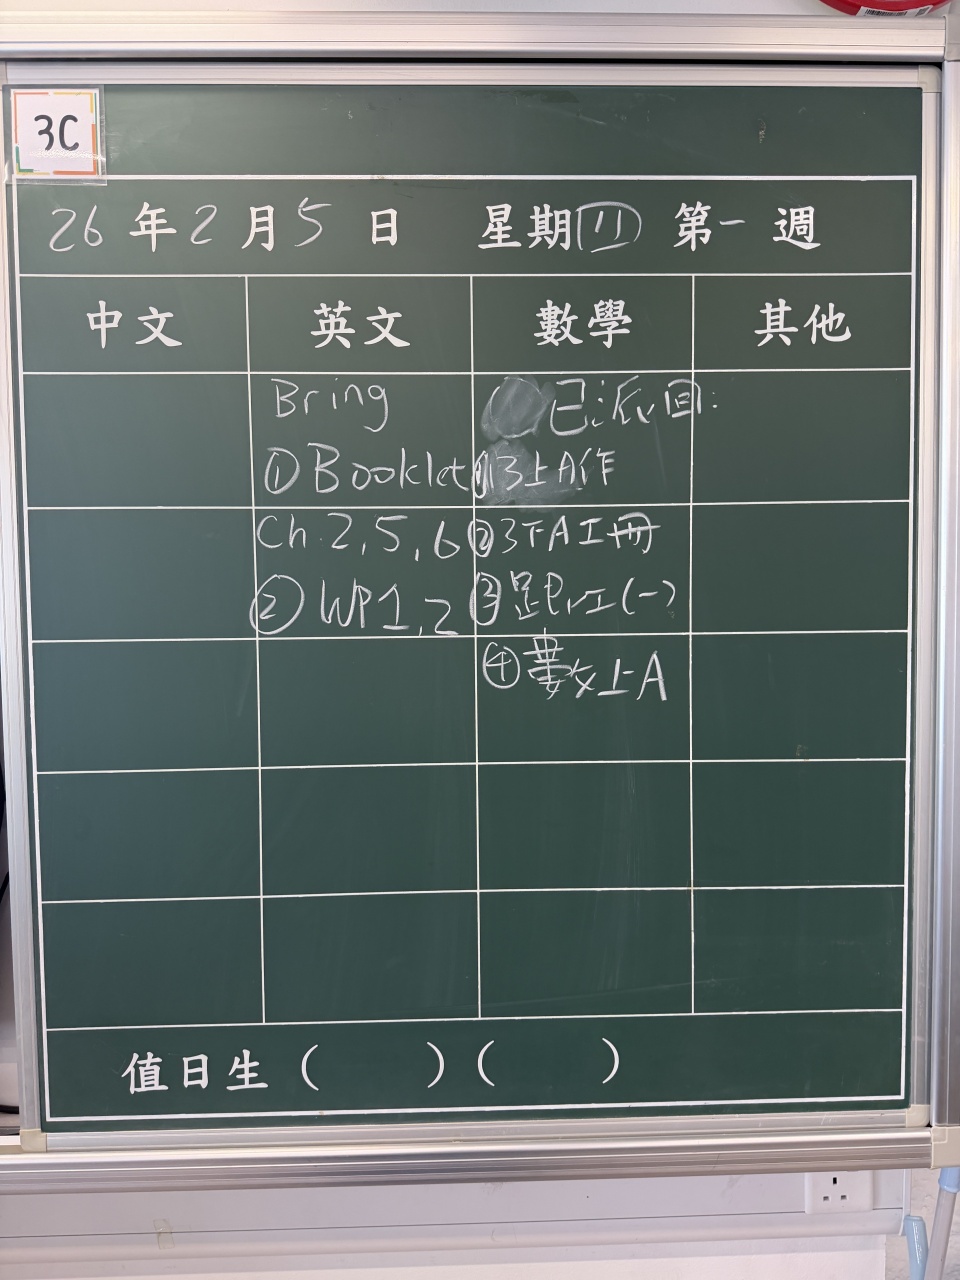 3C
26年2月5日 星期四 第一週
中文 英文 數學 其他
Bring
① Booklet
Ch. 2, 5, 6
② WP1, 2
已派回:
① 3上A作
② 3下A工冊
④ 數上A
值日生 ( ) ( )